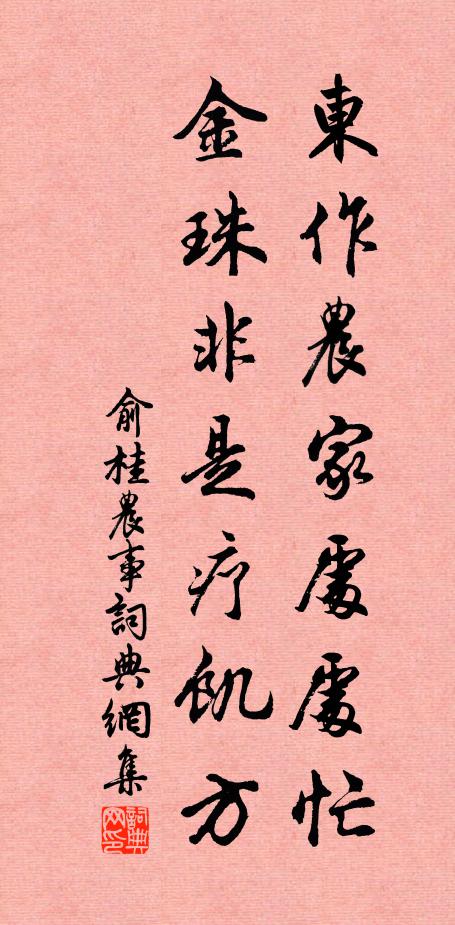 東作農家處處忙
金珠非是疗飢方
俞桂農事詞典網集
詞典网印